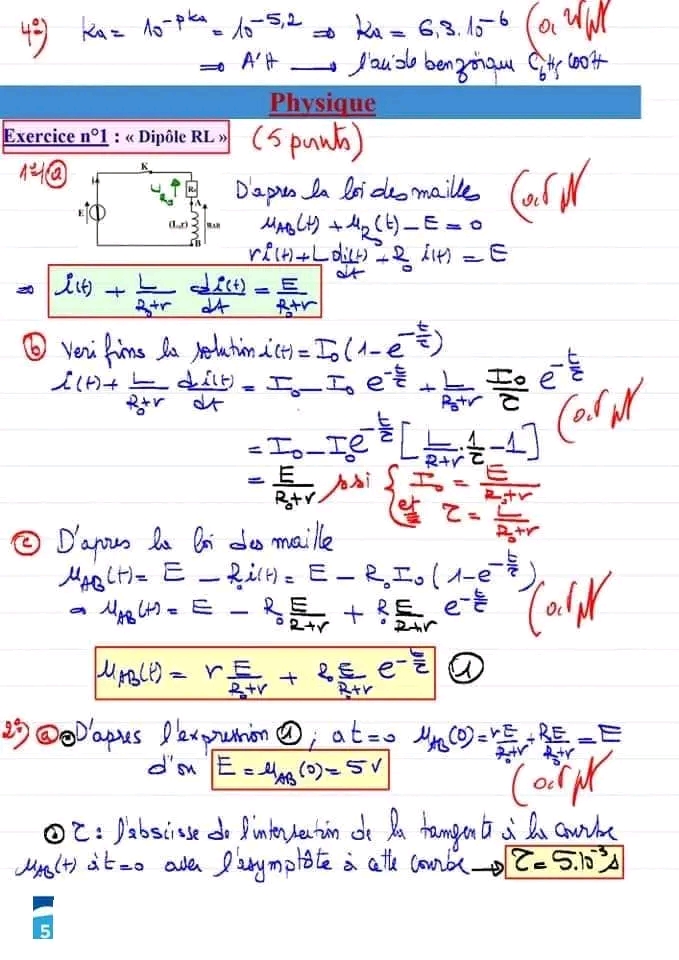 4°) Ka = 10^-pKa = 10^-5,2 ⇒ Ka = 6,3.10^-6 (0,5 pt)
⇒ A'H ⟶ l'acide benzoïque C6H5COOH
Physique
Exercice n°1 : « Dipôle RL » (5 points)
1°/ (a) D'apres la loi des mailles (0,5 pt)
K
E
R0
uR0
A
(L,r)
uAB
B
uAB(t) + uR0(t) - E = 0
r i(t) + L di(t)/dt + R0 i(t) = E
⇒ i(t) + L/(R0+r) di(t)/dt = E/(R0+r)
(b) Verifions la solution i(t) = I0(1 - e^-t/τ)
i(t) + L/(R0+r) di(t)/dt = I0 - I0 e^-t/τ + L/(R0+r) I0/τ e^-t/τ
= I0 - I0 e^-t/τ [L/(R+r) . 1/τ - 1] (0,5 pt)
= E/(R0+r) ssi { I0 = E/(R0+r)
et τ = L/(R0+r)
(c) D'apres la loi des maille
uAB(t) = E - R0 i(t) = E - R0 I0 (1 - e^-t/τ)
uAB(t) = E - R0 E/(R+r) + R0 E/(R+r) e^-t/τ (0,5 pt)
uAB(t) = r E/(R0+r) + R0 E/(R0+r) e^-t/τ (1)
2°) (a) D'apres l'expression (1) ; a t=0 uAB(0) = rE/(R0+r) + R0E/(R0+r) = E
d'ou E = uAB(0) = 5V (0,5 pt)
τ : l'abscisse de l'intersection de la tangente à la courbe
uAB(t) à t=0 avec l'asymptôte à cette courbe → τ = 5.10^-3 s
5